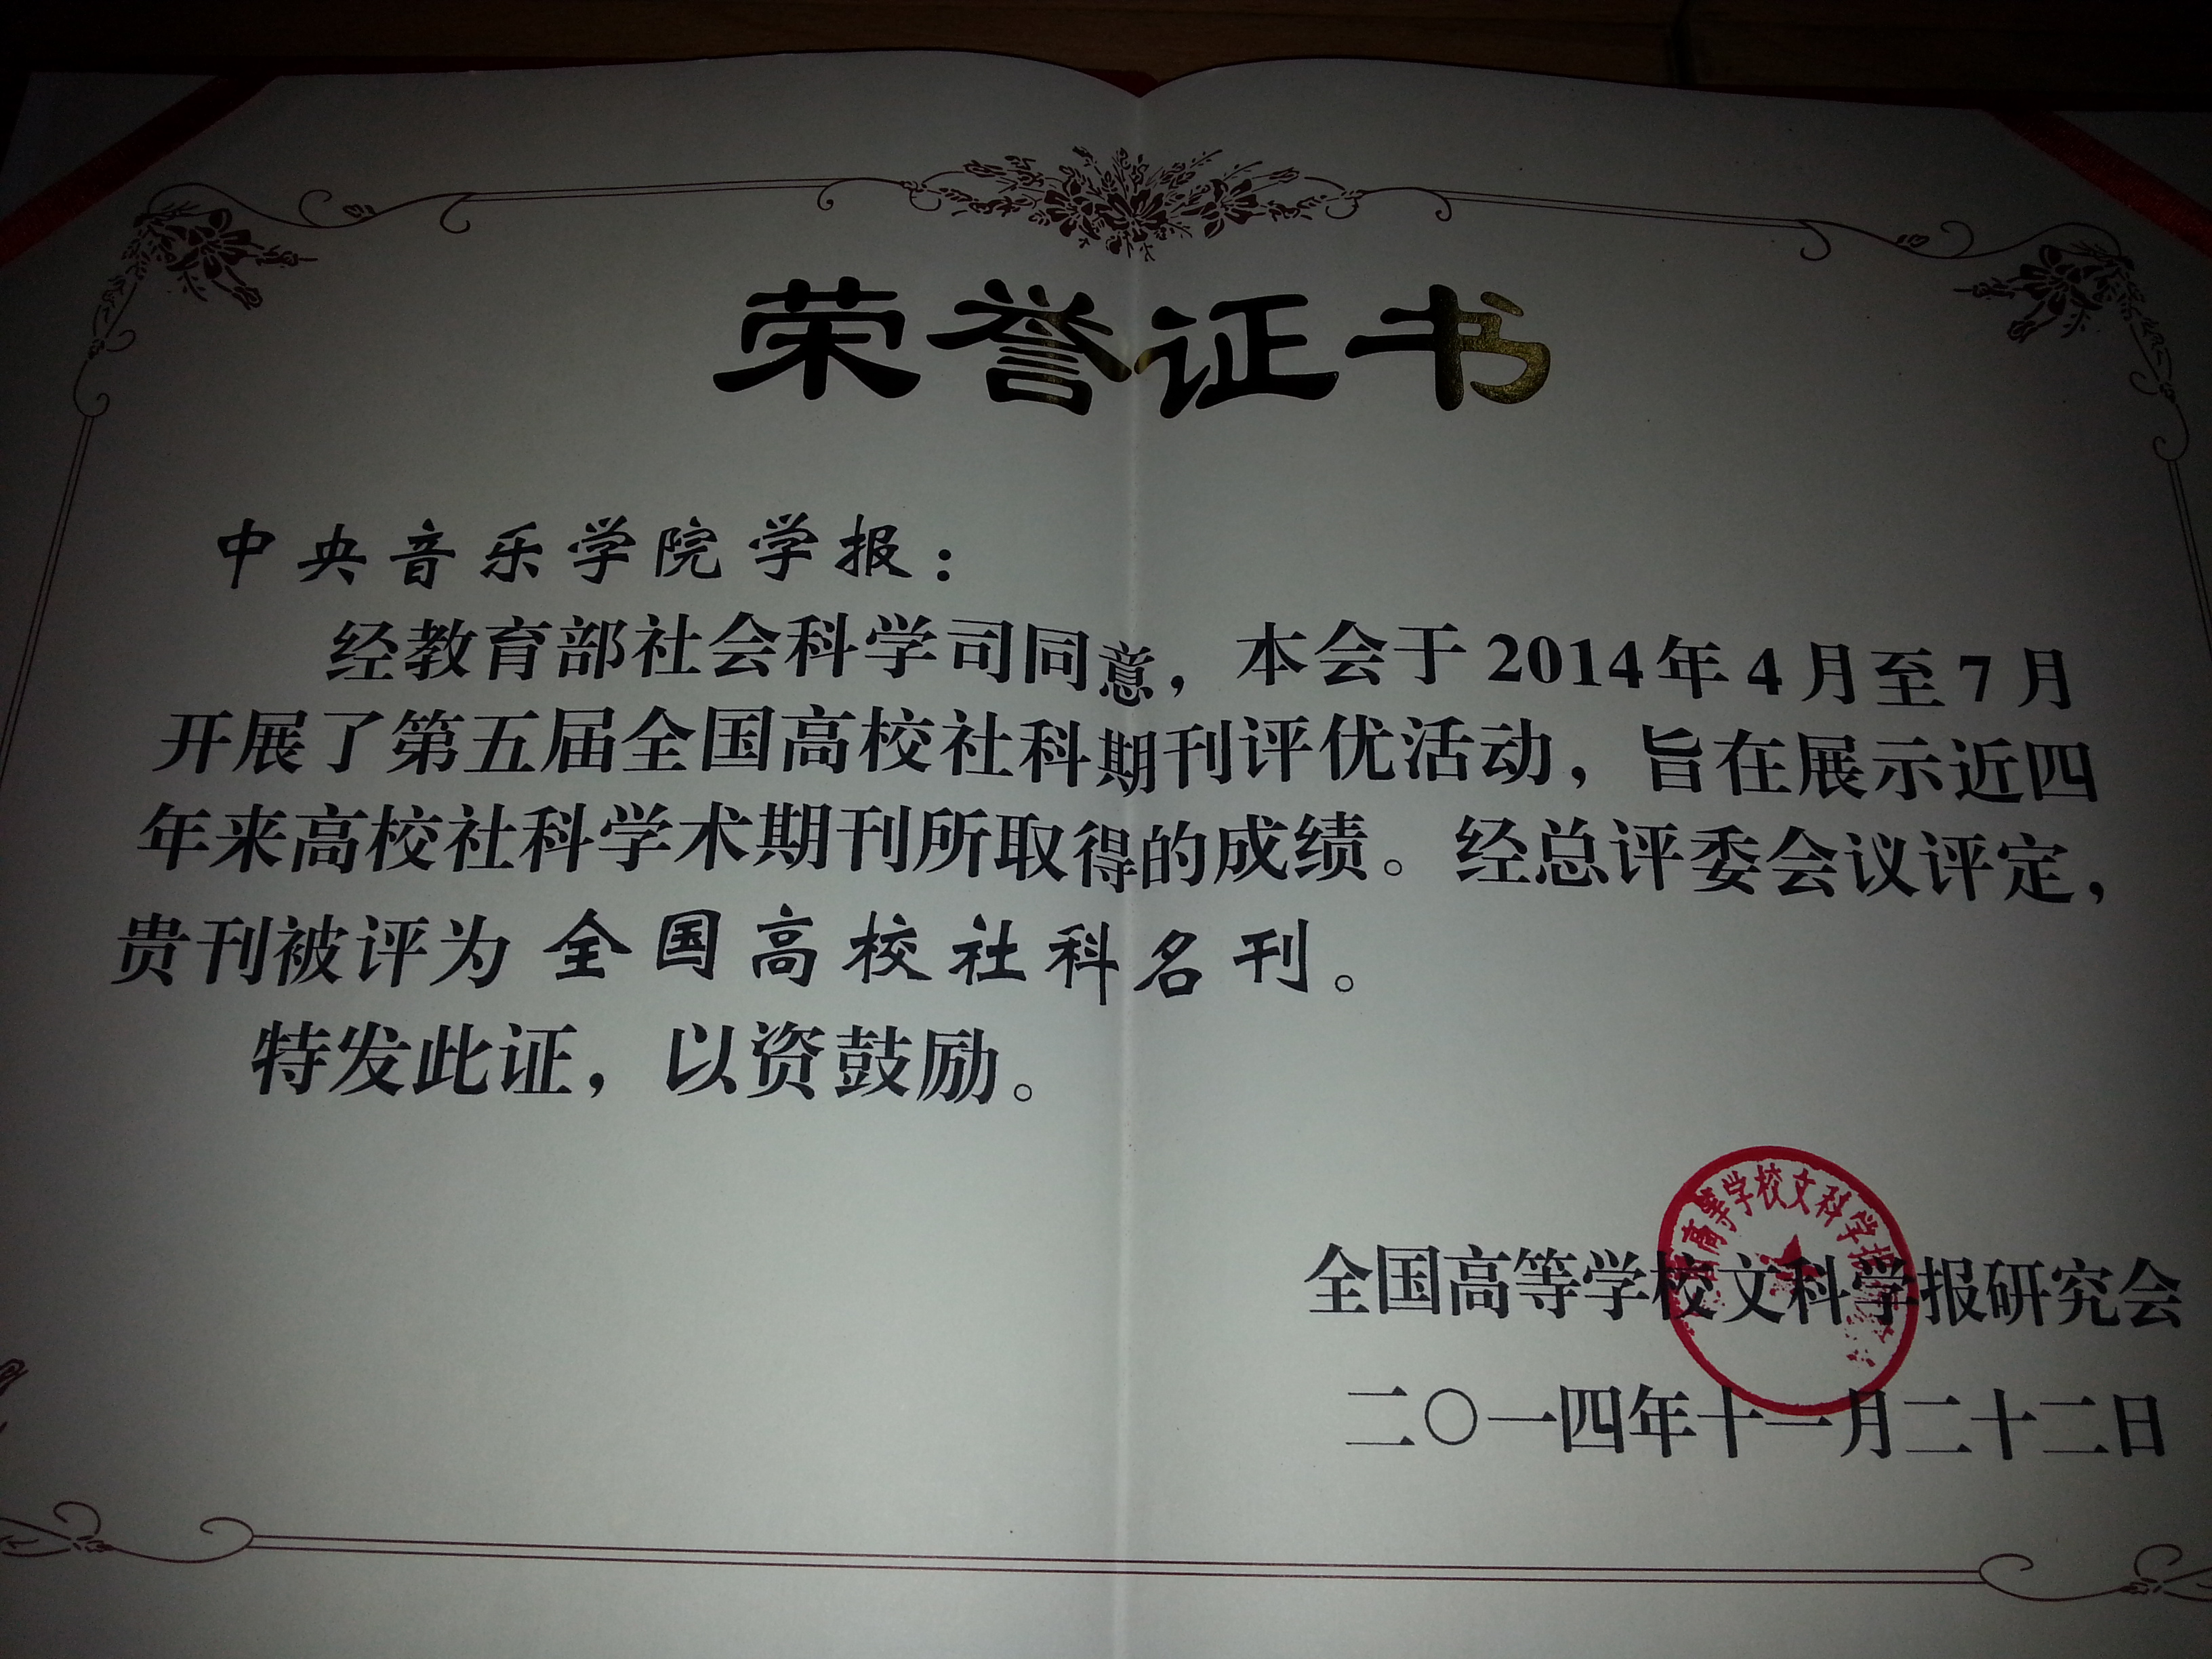 荣誉证书
中央音乐学院学报：
经教育部社会科学司同意，本会于2014年4月至7月
开展了第五届全国高校社科期刊评优活动，旨在展示近四
年来高校社科学术期刊所取得的成绩。经总评委会议评定，
贵刊被评为 全国高校社科名刊。
特发此证，以资鼓励。
高等学校文科学报
全国高等学校文科学报研究会
二〇一四年十一月二十二日